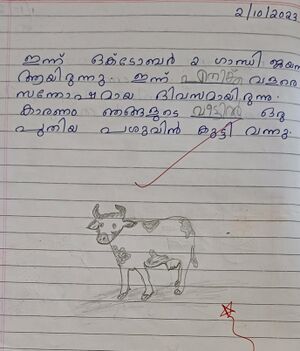 2/10/2023
ഇന്ന് ഒക്ടോബർ 2 ഗാന്ധി ജയന
ആയിരുന്നു. ഇന്ന് എനിക്ക് വളരെ
സന്തോഷമായ ദിവസമായിരുന്നു.
കാരണം ഞങ്ങളുടെ വീട്ടിൽ ഒരു
പുതിയ പശുവിൻ കുട്ടി വന്നു.